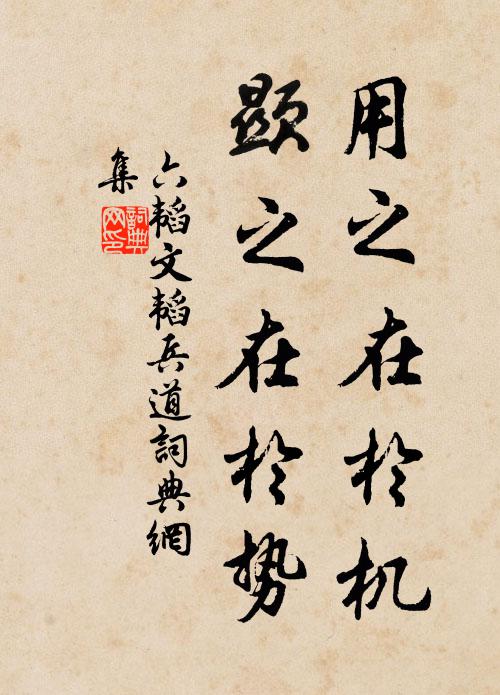 用之在於机
顯之在於势
六韜文韜兵道詞典網
集
詞典
网印